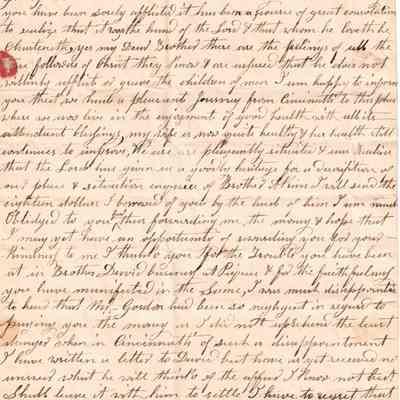 you have been sorely afflicted it has been a source of great consolation
to realize that it was the hand of the Lord & that whom he loveth he
Chasteneth, yes my Dear Brother these are the feelings of all the
true followers of Christ they know & are assured that he does not
willingly afflict or grieve the children of men I am happy to inform
you that we had a pleasant Journey from Cincinnati to this place
where we now live in the enjoyment of good health with all its
attendant blessings, my wife is now quite healthy & her health still
continues to improve, We are pleasantly situated & can realize
that the Lord has given us a goodly heritage for a description of
our place & situation enquire of Brother I will send the
eighteen dollars I borrowed of you by the hand of him I am much
Obledged to you for forwarding me the money & hope that
I may yet have an opportunity of rewarding you for your
kindness to me I thank you for the trouble you have been
at in Brother David business at & for the faithfulness
you have manifested in the Same, I was much disappointed
to hear that Mr. Gordon had been so negligent in regard to
you the money as I did not apprehend the least
danger when in Cincinnati of such a disappointment
I have written a letter to David but have as yet received no
answer what he will think of the affair I know not but
Shall leave it with him to settle I have to regret that